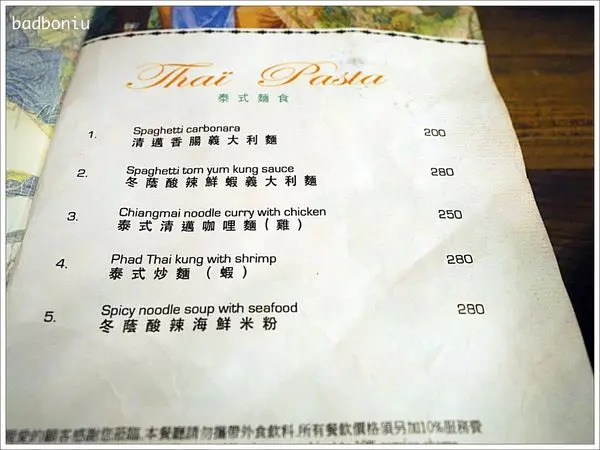 badboniu
Thaï Pasta
泰式麵食
1. Spaghetti carbonara 200
清邁香腸義大利麵
2. Spaghetti tom yum kung sauce 280
冬蔭酸辣鮮蝦義大利麵
3. Chiangmai noodle curry with chicken 250
泰式清邁咖哩麵(雞)
4. Phad Thai kung with shrimp 280
泰式炒麵(蝦)
5. Spicy noodle soup with seafood 280
冬蔭酸辣海鮮米粉
愛的顧客感謝您蒞臨.本餐廳請勿攜帶外食飲料.所有餐飲價格須另加10%服務費